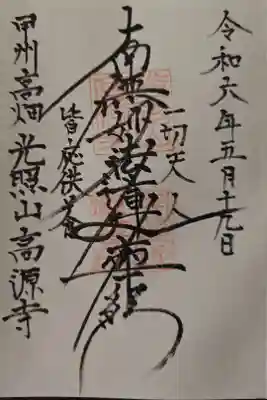 令和六年五月十九日
一切天人
南無妙法蓮華経
皆応供養
甲州高畑 光照山 高源寺